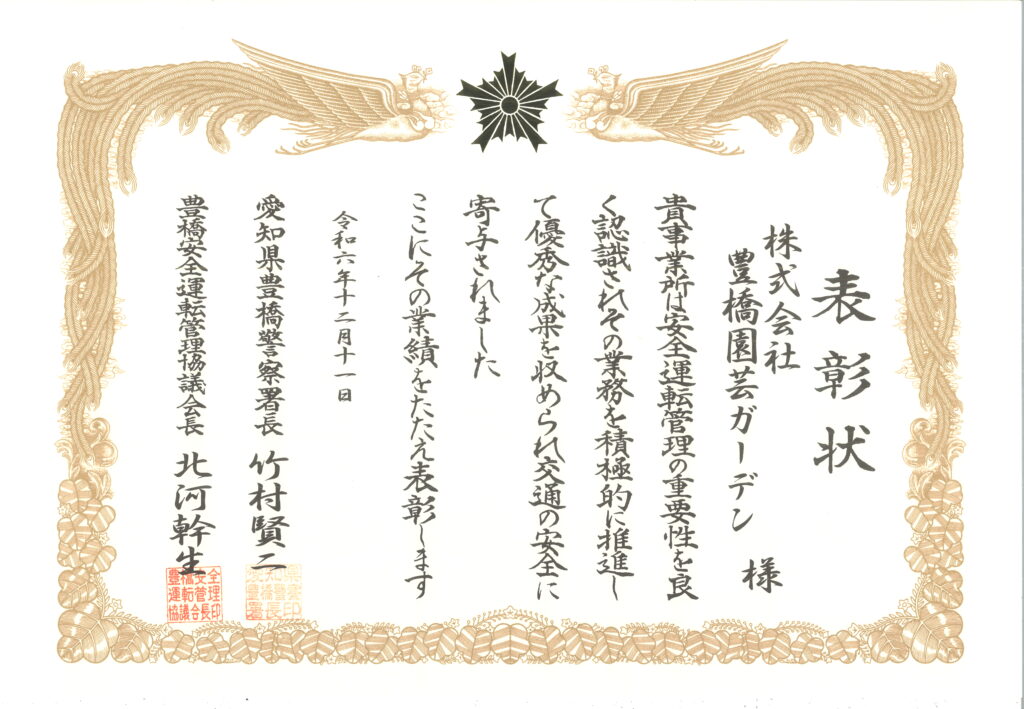 表彰状
株式会社
豊橋園芸ガーデン 様
貴事業所は安全運転管理の重要性を良
く認識されその業務を積極的に推進し
て優秀な成果を収められ交通の安全に
寄与されました
ここにその業績をたたえ表彰します
令和六年十二月十一日
愛知県豊橋警察署長 竹村賢二
豊橋安全運転管理協議会長 北河幹生